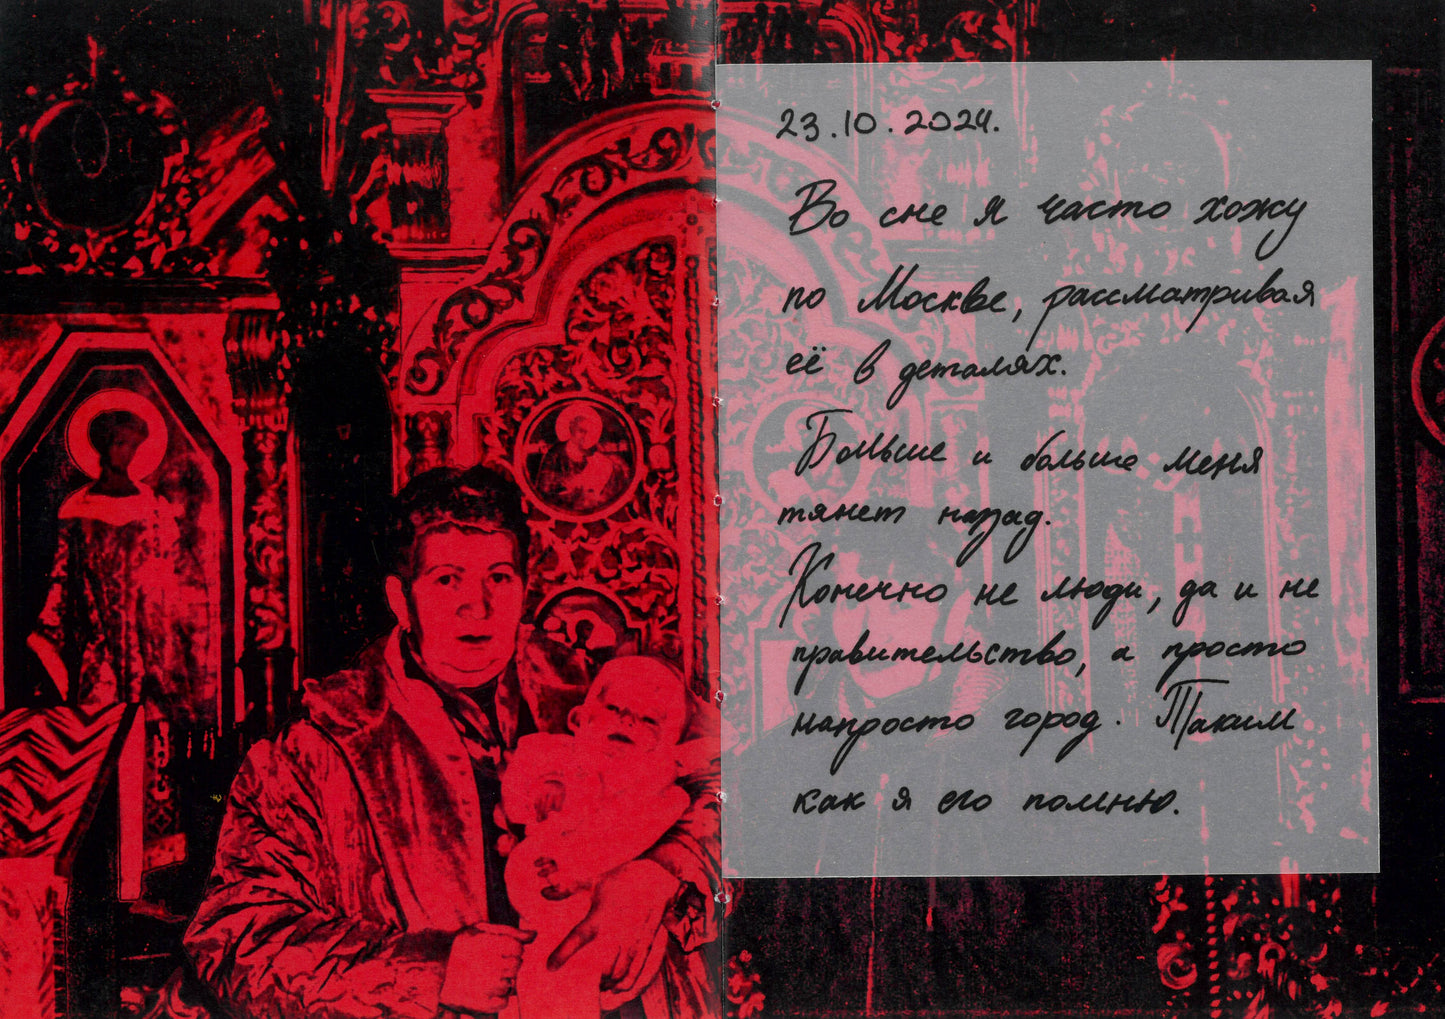 23.10.2024.
Во сне я часто хожу
по Москве, рассматривая
её в деталях.
Больше и больше меня
тянет назад.
Конечно не люди, да и не
правительство, а просто
напросто город. Таким
как я его помню.